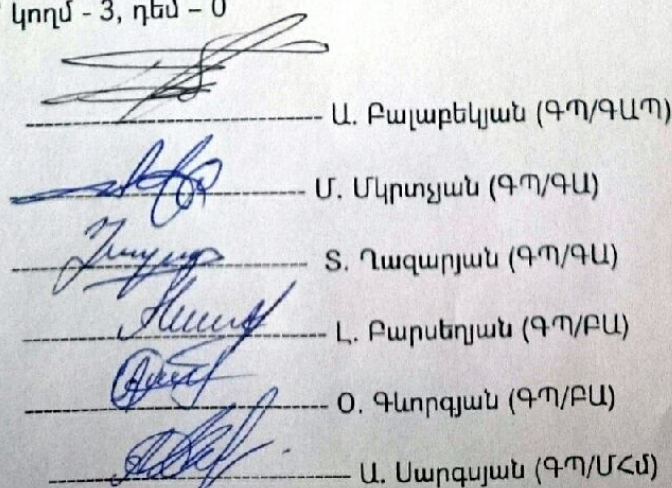 կողմ - 3, դեմ – 0
Ա. Բալաբեկյան (ԳՊ/ԳԱՊ)
Մ. Մկրտչյան (ԳՊ/ԳԱ)
Տ. Ղազարյան (ԳՊ/ԳԱ)
Լ. Բարսեղյան (ԳՊ/ԲԱ)
Օ. Գևորգյան (ԳՊ/ԲԱ)
Ա. Սարգսյան (ԳՊ/ՄՀմ)